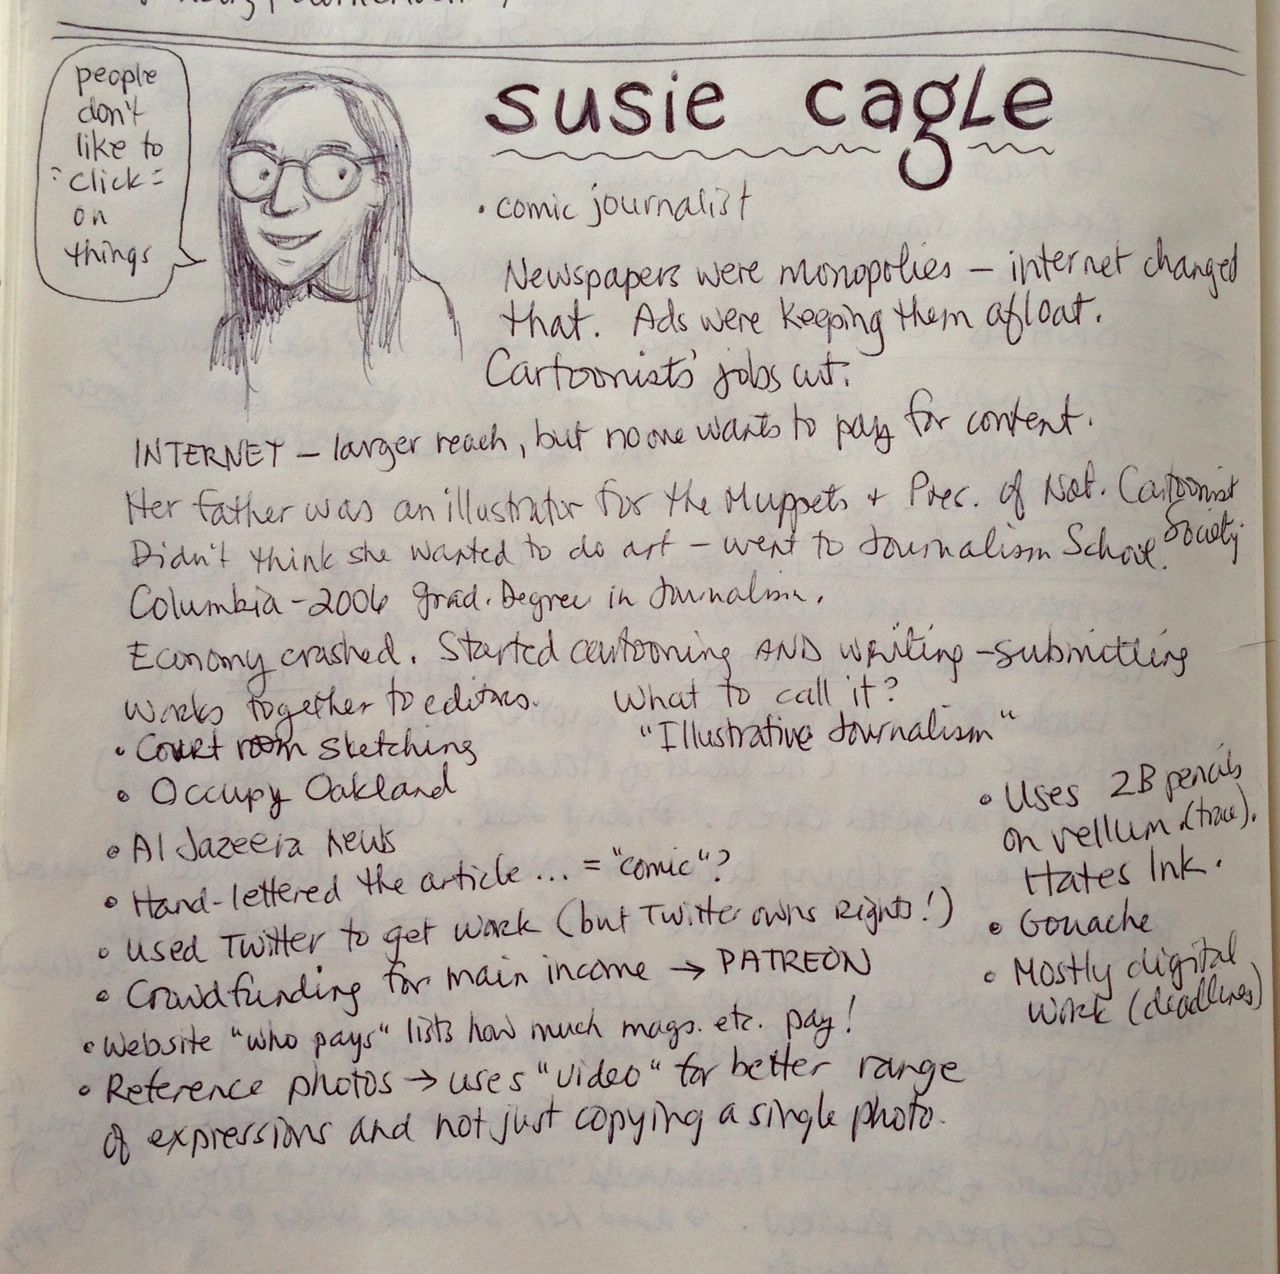 people
don't
like to
click
on
things
susie cagle
• comic journalist
Newspapers were monopolies – internet changed
that. Ads were keeping them afloat.
Cartoonists' jobs cut.
INTERNET – larger reach, but no one wants to pay for content.
Her father was an illustrator for the Muppets + Pres. of Nat. Cartoonist
Society
Didn't think she wanted to do art – went to Journalism School.
Columbia – 2006 grad. Degree in Journalism.
Economy crashed. Started cartooning AND writing – submitting
works together to editors.
What to call it?
"Illustrative Journalism"
• Court room sketching
• Occupy Oakland
• Al Jazeera News
• Hand-lettered the article ... = "comic"?
• used Twitter to get work (but Twitter owns rights!)
• Crowdfunding for main income → PATREON
• Website "who pays" lists how much mags. etc. pay!
• Reference photos → uses "video" for better range
of expressions and not just copying a single photo.
• Uses 2B pencils
on vellum (trace).
Hates Ink.
• Gouache
• Mostly digital
work (deadlines)